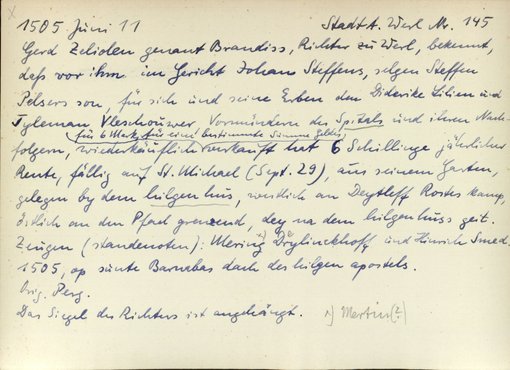 1505 Juni 11 Stadt A. Werl Nr. 145
Gerd Zelioen genant Brandiss, Richter zu Werl, bekennt,
dass vor ihm im Gericht Johan Steffens, selgen Steffen
Pelsers son, für sich und seine Erben den Diderike Lilien und
Tyleman Vleschouwer Vormündern des Spitals und ihren Nach-
für 6 Mark, für eine bestimmte Summe Geldes
folgern, wiederkäuflich verkauft hat 6 Schillinge jährlicher
Rente, fällig auf St. Michael (Sept. 29), aus seinem Garten,
gelegen by dem hilgen hus, westlich an Deytleff Rostes kamp,
östlich an den Pfad grenzend, dey na dem hilgen huss geit.
Zeugen (standenoten): Mering 1) Drylinckhoff und Hinrich Smed.
1505, op sunte Barnabas dach des hilgen apostels.
Orig. Perg.
Das Siegel des Richters ist angehängt. 1) Martin (?)